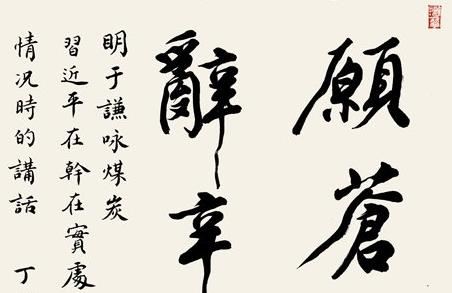 願蒼
辭辛
明于謙咏煤炭
習近平在幹在實處
情況時的講話 丁